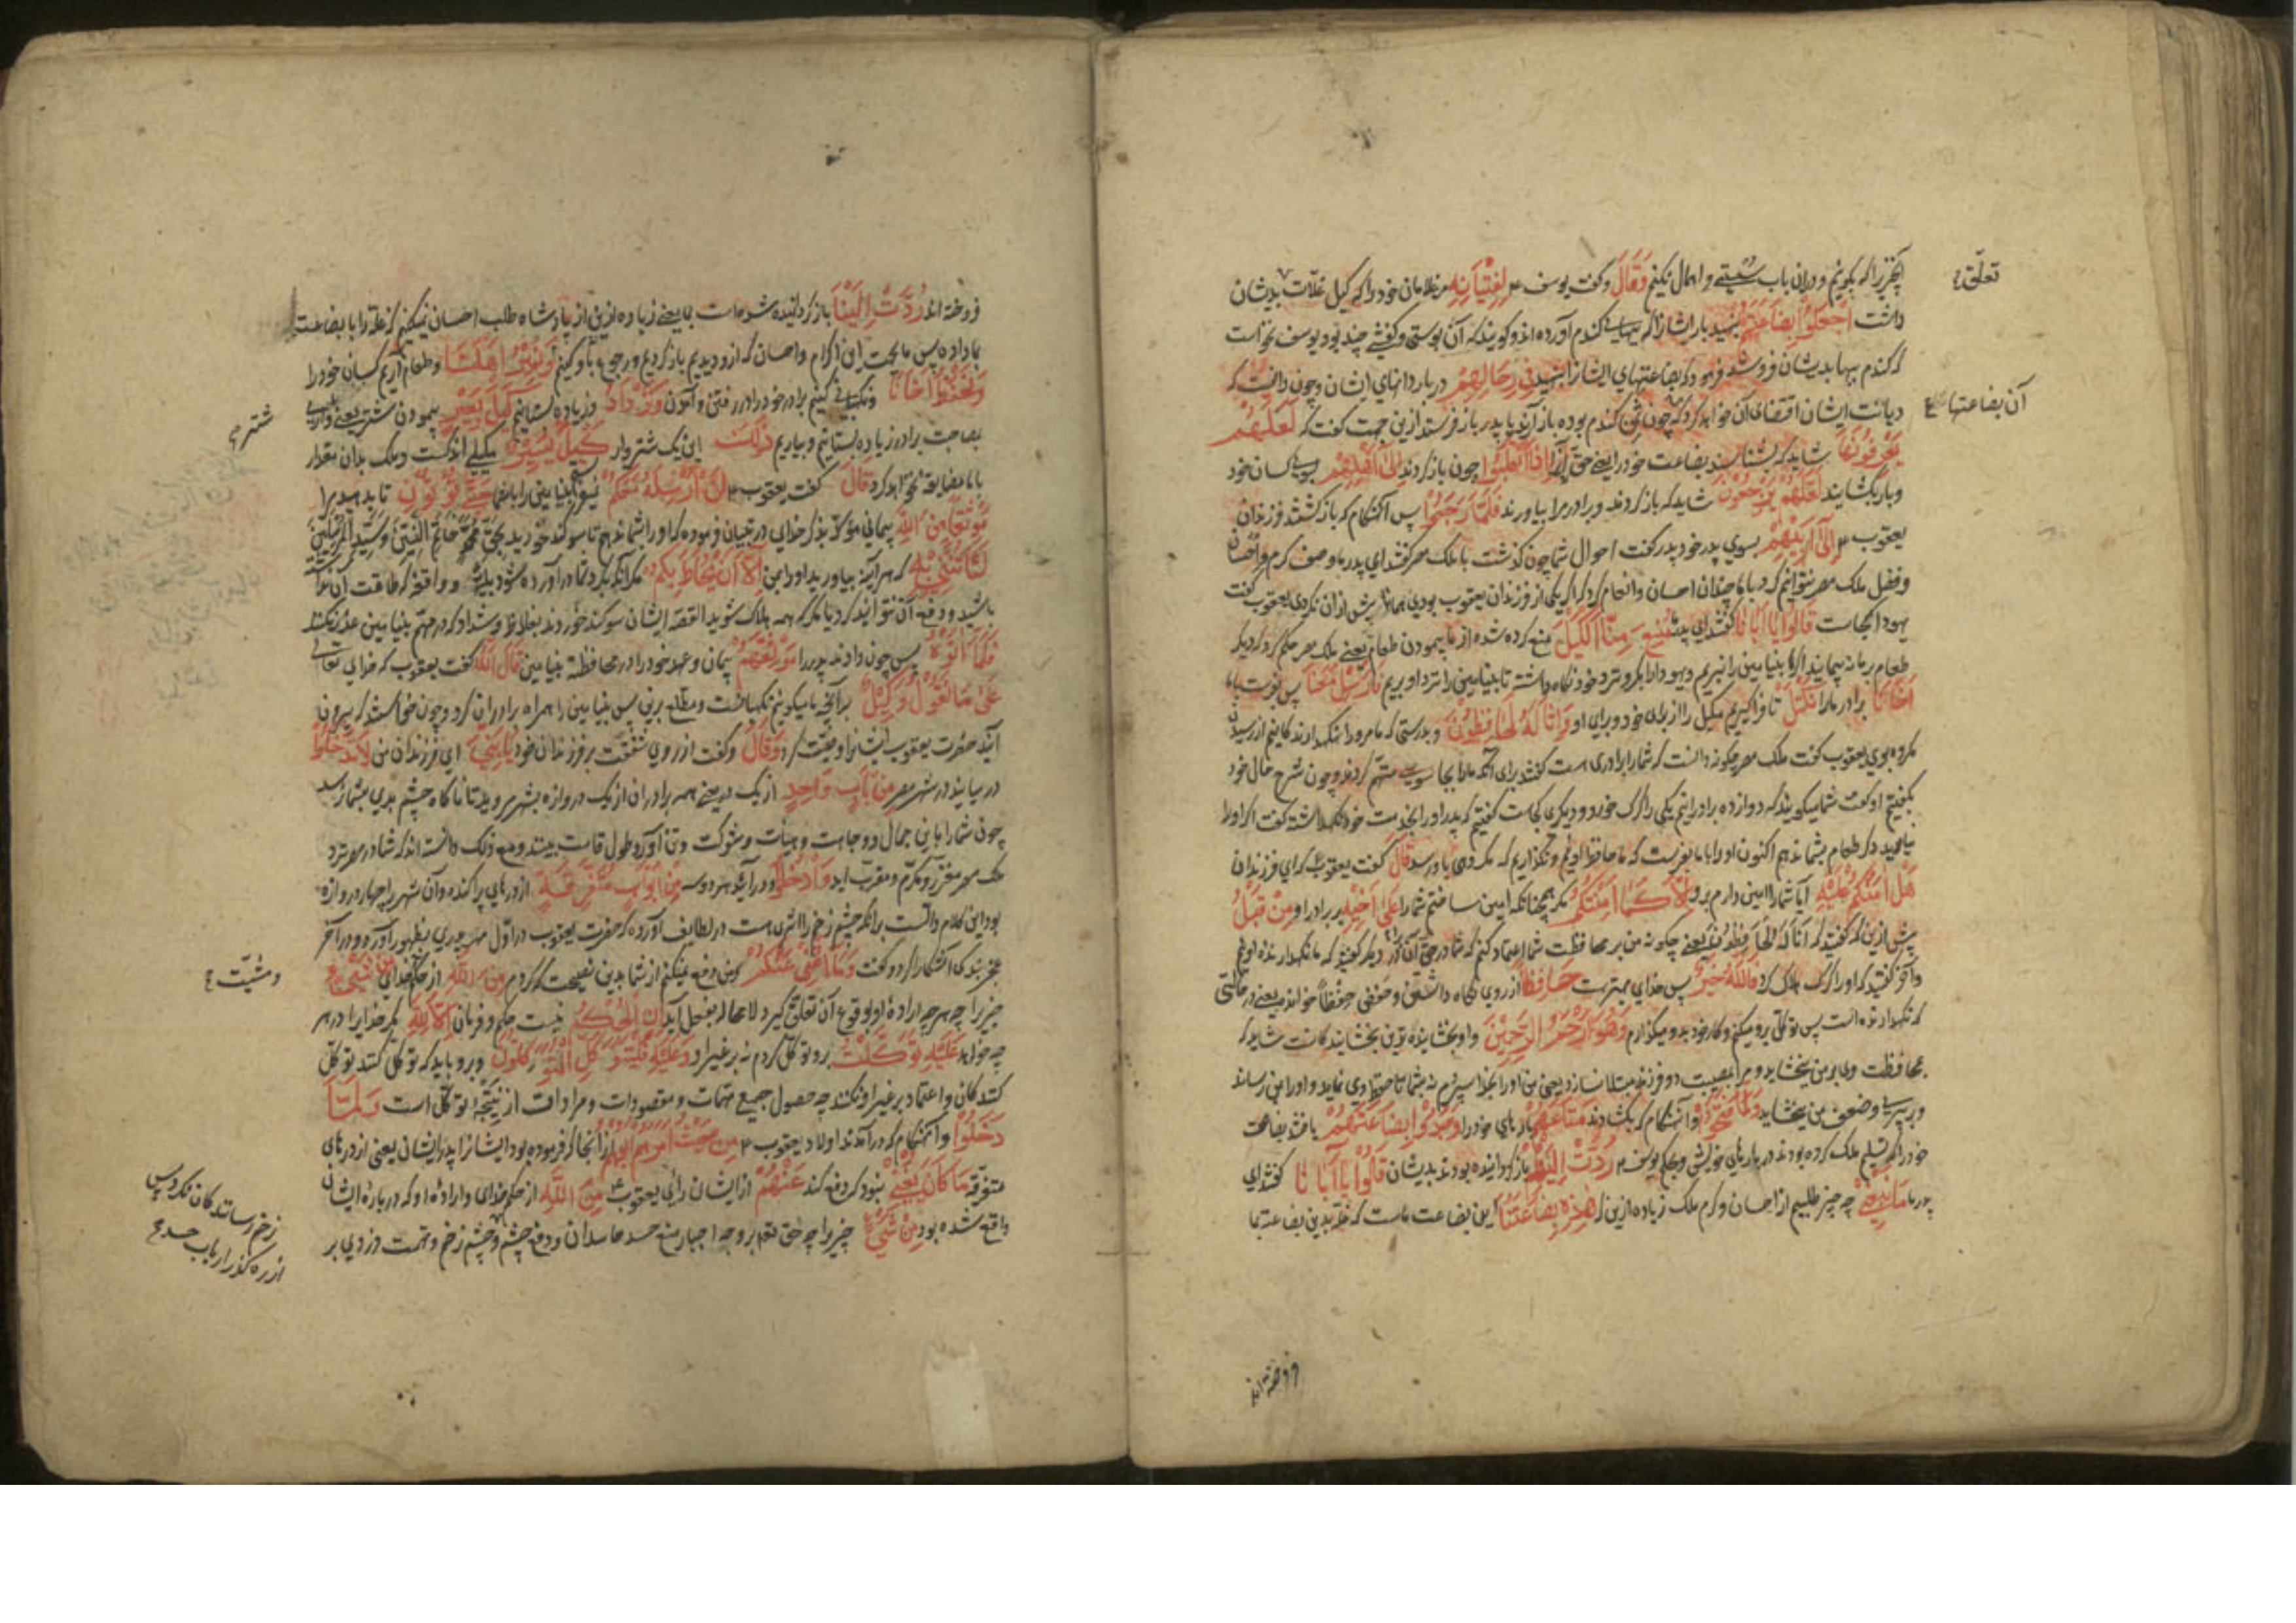 آنچیز را که بگوییم و دران باب سستی و اهمال نکنیم وَقَالَ و گفت یوسف لِفِتْيَانِهِ مر غلامان خود را که کیل غلات بدیشان
تعلّق
داشت اجْعَلُوا بِضَاعَتَهُمْ بنهید بار ایشانرا که ببهای گندم آورده اند و گویند که آن پوستی و کفشی چند بود یوسف نخواست
که گندم ببها بدیشان فروشد فرمود که بضاعتهای ایشانرا بنهید فِي رِحَالِهِمْ در باردانهای ایشان و چون دانست که
آن بضاعتها
دیانت ایشان اقتضای آن خواهد کرد که چون ثمن گندم بوده باز آرند یا پدر باز فرستد ازین جهت گفت که لَعَلَّهُمْ
يَعْرِفُونَهَا شاید که بشناسند بضاعت خود را یعنی حق آنرا إِذَا انْقَلَبُوا چون باز گردند إِلَىٰ أَهْلِهِمْ بسوی کسان خود
و بار بگشایند لَعَلَّهُمْ يَرْجِعُونَ شاید که باز گردند و برادر مرا بیاورند فَلَمَّا رَجَعُوا پس آنهنگام که باز گشتند فرزندان
یعقوب إِلَىٰ أَبِيهِمْ بسوی پدر خود پدر گفت احوال شما چون گذشت با ملک مصر گفتند ای پدر ما وصف کرم و احسان
و فضل ملک مصر نتوانیم کرد با ما چندان احسان و انعام کرد که اگر یکی از فرزندان یعقوب بودی همانا بیش ازان نکردی یعقوب گفت
یهودا کجاست قَالُوا يَا أَبَانَا گفتند ای پدر مُنِعَ مِنَّا الْكَيْلُ منع کرده شده از ما پیمودن طعام یعنی ملک مصر حکم کرد که دیگر
طعام بر ما نه پیمایند اگر ما بنیامین را نبریم و یهودا را بگرو نزد خود نگاه داشته تا بنیامین را نزد او بریم فَأَرْسِلْ مَعَنَا پس بفرست با ما
أَخَانَا برادر ما را نَكْتَلْ تا فراگیریم مکیل را از برای خود و برای او وَإِنَّا لَهُ لَحَافِظُونَ و بدرستی که ما مر او را نگهدارندگانیم از رسیدن
مکروه بوی یعقوب گفت ملک مصر چگونه دانست که شما را برادری است گفتند برای آنکه ما را بجاسوسی متهم کردند و چون شرح حال خود
بگفتیم او گفت شما میگویید که دوازده برادرانیم یکی را گرگ خورد و دیگری کجاست گفتیم که پدر او را بخدمت خود نگهداشته گفت اگر او را
نیاورید دیگر طعام بشما ندهم اکنون او را با ما بفرست که ما حافظ اوییم و نگذاریم که مکروهی باو رسد قَالَ گفت یعقوب که ای فرزندان
هَلْ آمَنُكُمْ عَلَيْهِ آیا شما را امین دارم برو إِلَّا كَمَا أَمِنْتُكُمْ مگر همچنانکه امین ساختم شما را عَلَىٰ أَخِيهِ بر برادر او مِنْ قَبْلُ
پیش ازین که گفتید که انّا له لحافظون یعنی چگونه من بر محافظت شما اعتماد کنم که شما در حق آن دیگر گفتید که ما نگهدارنده اوییم
و آخر گفتید که او را گرگ هلاک کرد فَاللَّهُ خَيْرٌ پس خدای بهترست حَافِظًا از روی نگاه داشتن و حفص حفظًا خواند یعنی در حالتی
که نگهدارنده است پس توکل برو میکنم و کار خود بدو میگذارم وَهُوَ أَرْحَمُ الرَّاحِمِينَ و او بخشاینده ترین بخشایندگانست شاید که
محافظت وی بر من ببخشاید و مرا بمصیبت دو فرزند مبتلا نسازد یعنی من او را بخدا سپردم نه بشما تا حفظ وی نماید و او را بمن رساند
و بر پیری و ضعف من ببخشاید وَلَمَّا فَتَحُوا و آنهنگام که بگشادند مَتَاعَهُمْ بارهای خود را وَجَدُوا بِضَاعَتَهُمْ یافتند بضاعت
خود را که تسلیم ملک کرده بودند در بارهای خویش و بحکم یوسف رُدَّتْ إِلَيْهِمْ باز گردانیده بودند بدیشان قَالُوا يَا أَبَانَا گفتند ای
پدر ما مَا نَبْغِي چه چیز طلبیم از احسان و کرم ملک زیاده ازین که هَٰذِهِ بِضَاعَتُنَا این بضاعت ماست که غله بدین بضاعت بما
فروخته اند
فروخته اند رُدَّتْ إِلَيْنَا باز گردانیده شده است بما یعنی زیاده ازین از پادشاه طلب احسان نمیکنیم که غله را با بضاعت
بما داده پس ما بجهت این اکرام و احسان که ازو دیدیم باز گردیم و رجوع باو کنیم وَنَمِيرُ أَهْلَنَا و طعام آریم کسان خود را
وَنَحْفَظُ أَخَانَا و نگهبانی کنیم برادر خود را در رفتن و آمدن وَنَزْدَادُ و زیاده بستانیم كَيْلَ بَعِيرٍ پیمودن شتری یعنی
شتر
بمصاحبت برادر زیاده بستانیم و بیاریم ذَٰلِكَ این یک شتروار كَيْلٌ يَسِيرٌ مکیلی اندکست و ملک بدان مقدار
با ما مضایقه نخواهد کرد قَالَ گفت یعقوب لَنْ أُرْسِلَهُ مَعَكُمْ نفرستم بنیامین را با شما حَتَّىٰ تُؤْتُونِ تا بدهید مرا
مَوْثِقًا مِنَ اللَّهِ پیمانی مؤکد بذکر خدای در تبیان فرموده که او را بشما ندهم تا سوگند خورید بحق محمد خاتم النبیین و سید المرسلین
لَتَأْتُنَّنِي بِهِ که هر آینه بیاورید او را بمن إِلَّا أَنْ يُحَاطَ بِكُمْ مگر آنکه گرد شما در آورده شود بلیه و واقعه که طاقت آن نداشته
باشید و دفع آن نتوانید کرد یا مگر که همه هلاک شوید القصه ایشان سوگند خوردند بغلاظ و شداد که در مهم بنیامین عذر نکنند
فَلَمَّا آتَوْهُ پس چون دادند پدر را مَوْثِقَهُمْ پیمان و عهد خود را در محافظت بنیامین قَالَ اللَّهُ گفت یعقوب که خدای تعالی
عَلَىٰ مَا نَقُولُ وَكِيلٌ بر آنچه ما میگوییم نگهبانست و مطلع برین پس بنیامین را همراه برادران کرد و چون خواستند که بیرون
آیند حضرت یعقوب ایشانرا وصیت کرد وَقَالَ و گفت از روی شفقت بر فرزندان خود يَا بَنِيَّ ای فرزندان من لَا تَدْخُلُوا
در میایید در شهر مصر مِنْ بَابٍ وَاحِدٍ از یک در یعنی همه برادران از یک دروازه بشهر مروید تا ناگاه چشم بدی بشما نرسد
چون شما را باین جمال و وجاهت و هیأت و شوکت و تن آوری و طول قامت ببینند و مع ذلک دانسته اند که شما در مصر نزد
ملک مصر معزز و مکرم و مقرب اید وَادْخُلُوا و در آیید هر دوسه مِنْ أَبْوَابٍ مُتَفَرِّقَةٍ از درهای پراکنده و آن شهر را چهار دروازه
بود این کلام دالست بر آنکه چشم زخم را اثری هست در لطایف آورده که حضرت یعقوب در اول مهر پدری بظهور آورد و در آخر
عجز بندگی آشکارا کرد و گفت وَمَا أُغْنِي عَنْكُمْ و من دفع نمیکنم از شما بدین نصیحت که کردم مِنَ اللَّهِ از حکم خدای مِنْ شَيْءٍ
و مشیّت
چیزیرا چه هر چه اراده او بوقوع آن تعلق گیرد لا محاله بفعل آید إِنِ الْحُكْمُ نیست حکم و فرمان إِلَّا لِلَّهِ مگر خدایرا در هر
چه خواهد عَلَيْهِ تَوَكَّلْتُ برو توکل کردم نه بر غیر او وَعَلَيْهِ فَلْيَتَوَكَّلِ الْمُتَوَكِّلُونَ و برو باید که توکل کنند توکل
کنندگان و اعتماد بر غیر او نکنند چه حصول جمیع مهمات و مقصودات و مرادات از نتیجه توکل است وَلَمَّا
دَخَلُوا و آنهنگام که در آمدند اولاد یعقوب مِنْ حَيْثُ أَمَرَهُمْ أَبُوهُمْ از آنجا که فرموده بود ایشانرا پدر ایشانی یعنی از درهای
متفرقه مَا كَانَ يُغْنِي نبود که دفع کند عَنْهُمْ از ایشان رأی یعقوب مِنَ اللَّهِ از حکم خدای و اراده او که درباره ایشان
واقع شده بود مِنْ شَيْءٍ چیزیرا چه حق تعالی بر وجه اجبار منع حسد حاسدان و دفع چشم زخم و تهمت دزدی بر
زخم رسانندگان نکرد پس
از ره گذر ارباب حسد